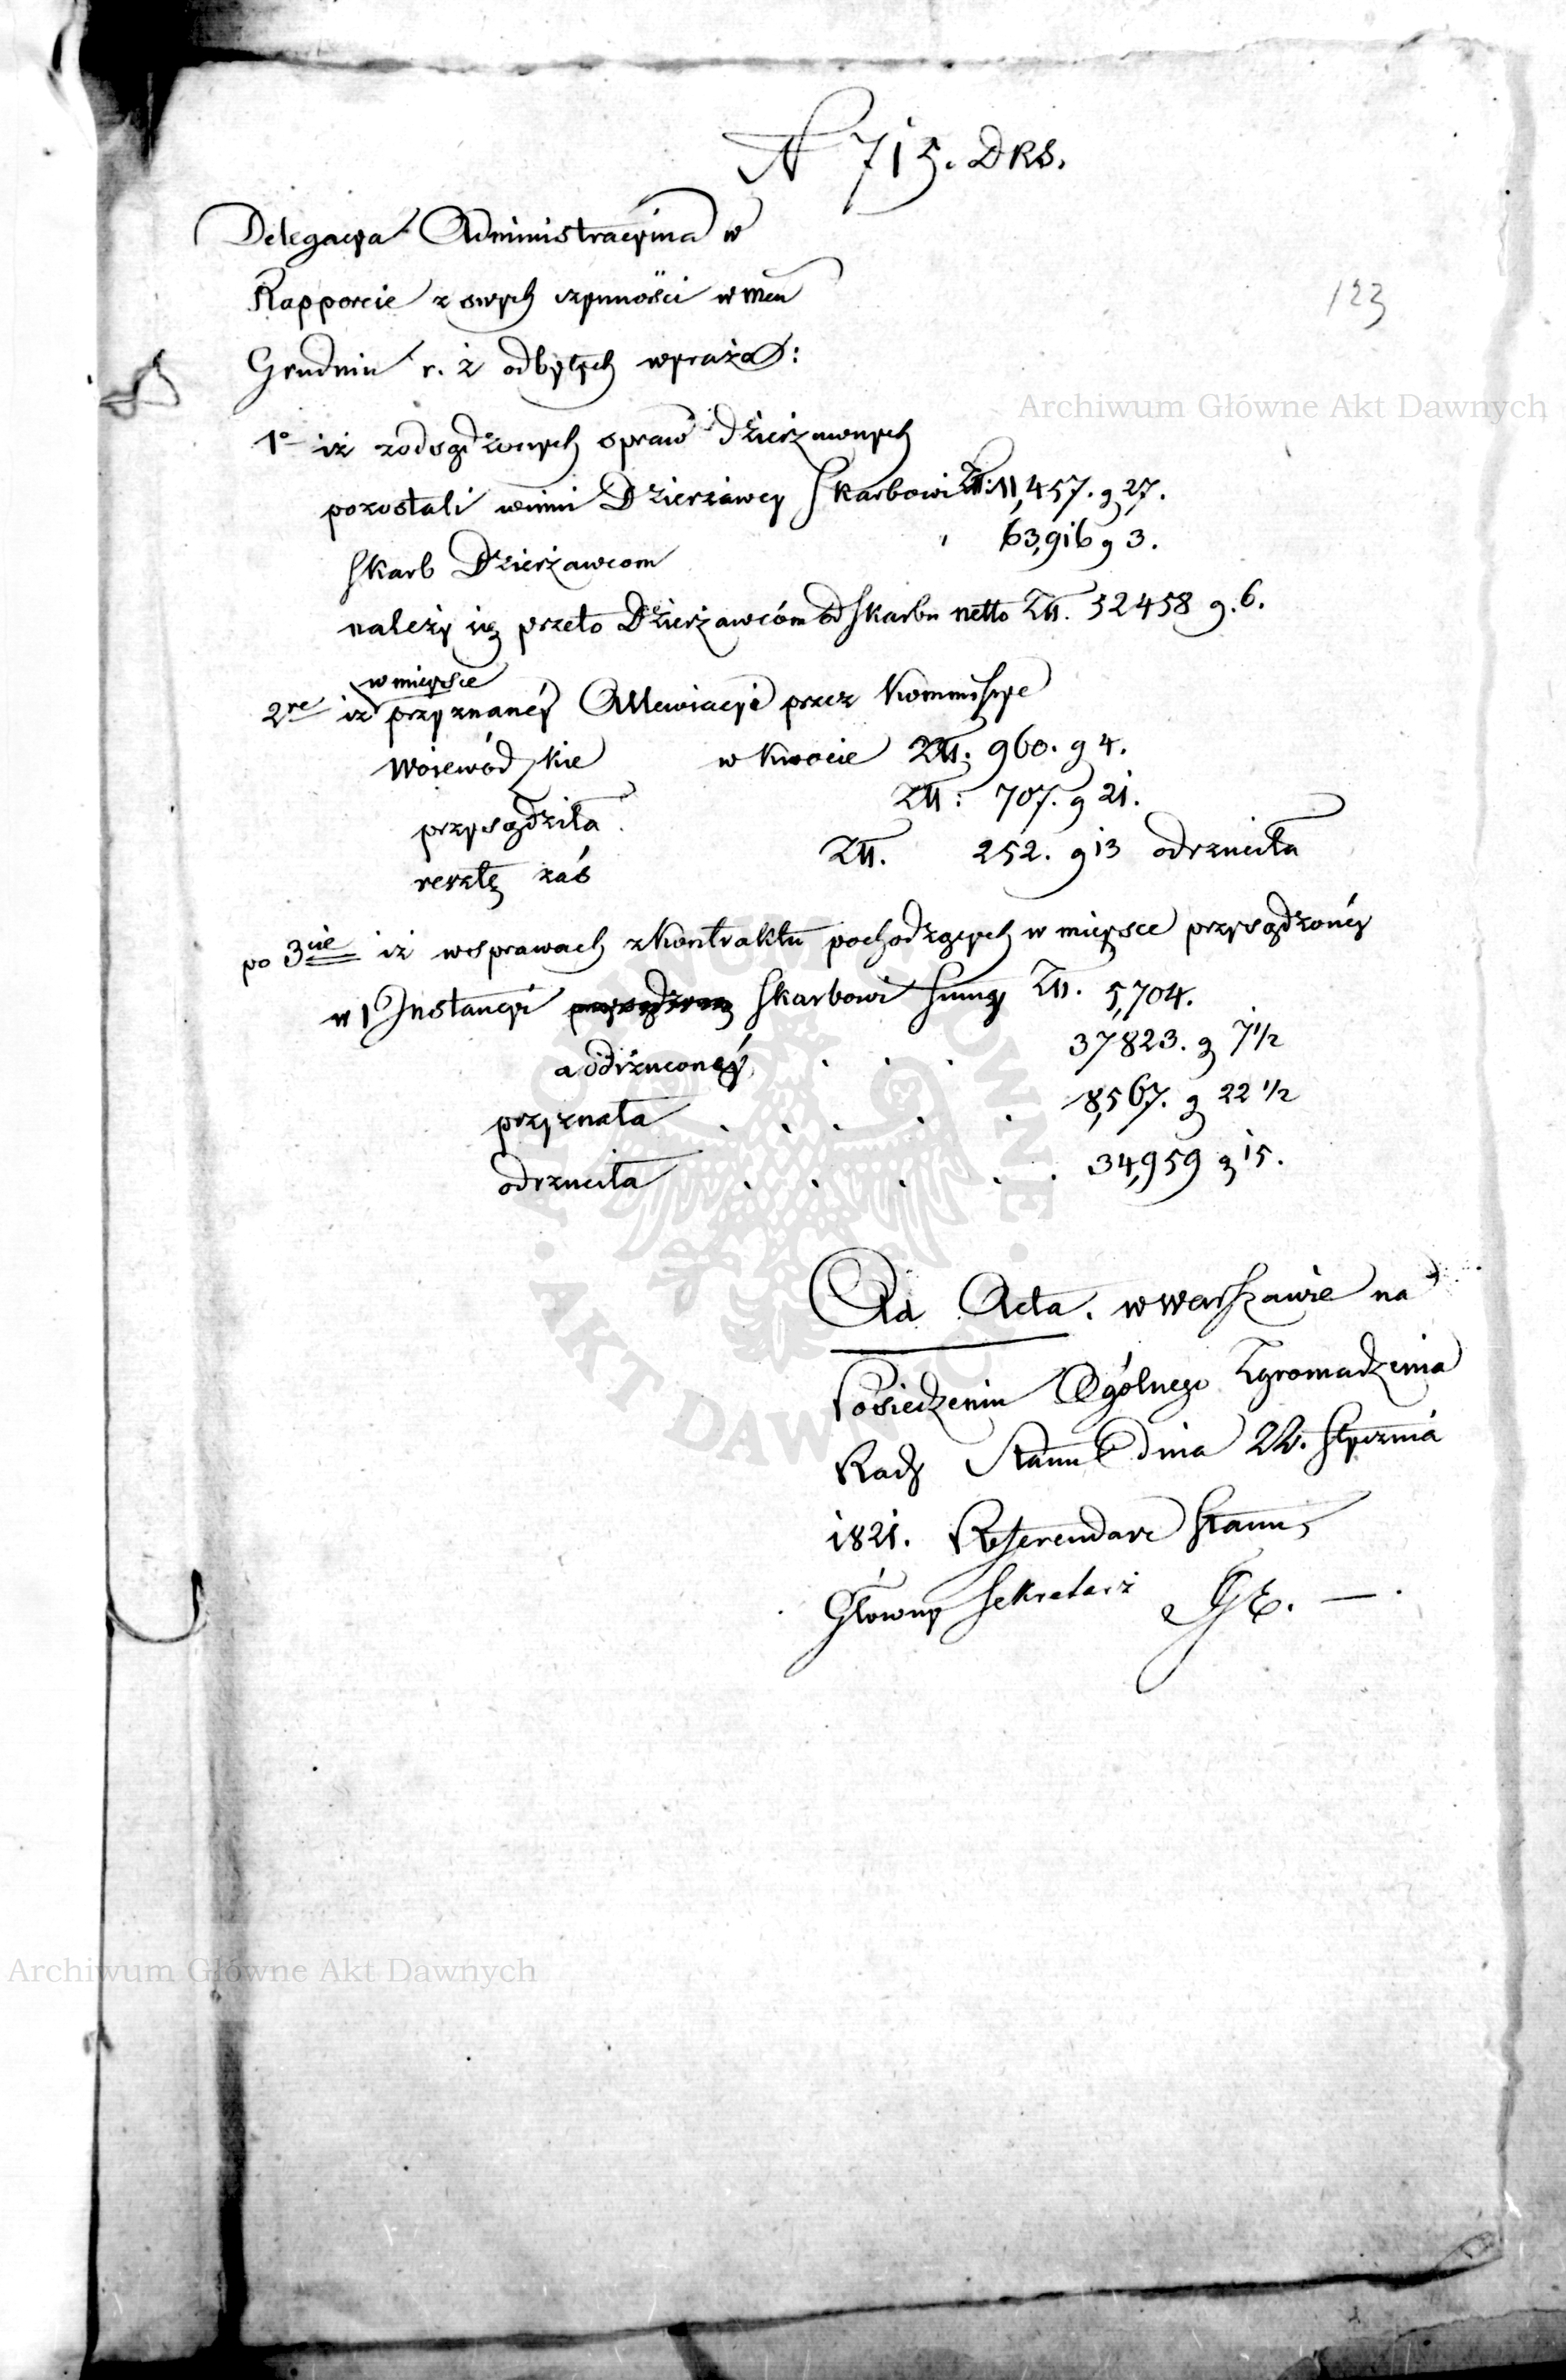 N 715. DRS.
123
Delegacya Administracyina w
Rapporcie z swych czynności w mcu
Grudniu r. z odbytych wyraża:
1º iż z odsądzonych spraw dzierżawnych
pozostali winni Dzierżawcy Skarbowi Zł: 11,457. g 27.
Skarb Dzierżawcom " 63,916 g 3.
należy się przeto Dzierżawcóm od Skarbu netto Zł. 52458 g. 6.
w mieysce
2re iż przyznanéy Allewiacyi przez Kommissye
Wojewódzkie w kwocie Zł: 960. g 4.
przysądziła Zł: 707. g 21.
resztę zaś Zł. 252. g 13 odrzuciła
po 3cie iż w sprawach z kontraktu pochodzących w mieysce przysądzonéy
w 1 Instancyi Skarbowi Summy Zł. 5,704.
a odrzuconéy . . . 37823. g 7 1/2
przyznała . . . . . 8,567. g 22 1/2
odrzuciła . . . . . 34,959 g 15.
Ad Acta. w Warszawie na
Posiedzeniu Ogólnego Zgromadzenia
Rady Stanu dnia 22. Stycznia
1821. Referendarz Stanu,
Główny Sekretarz
Archiwum Główne Akt Dawnych
Archiwum Główne Akt Dawnych